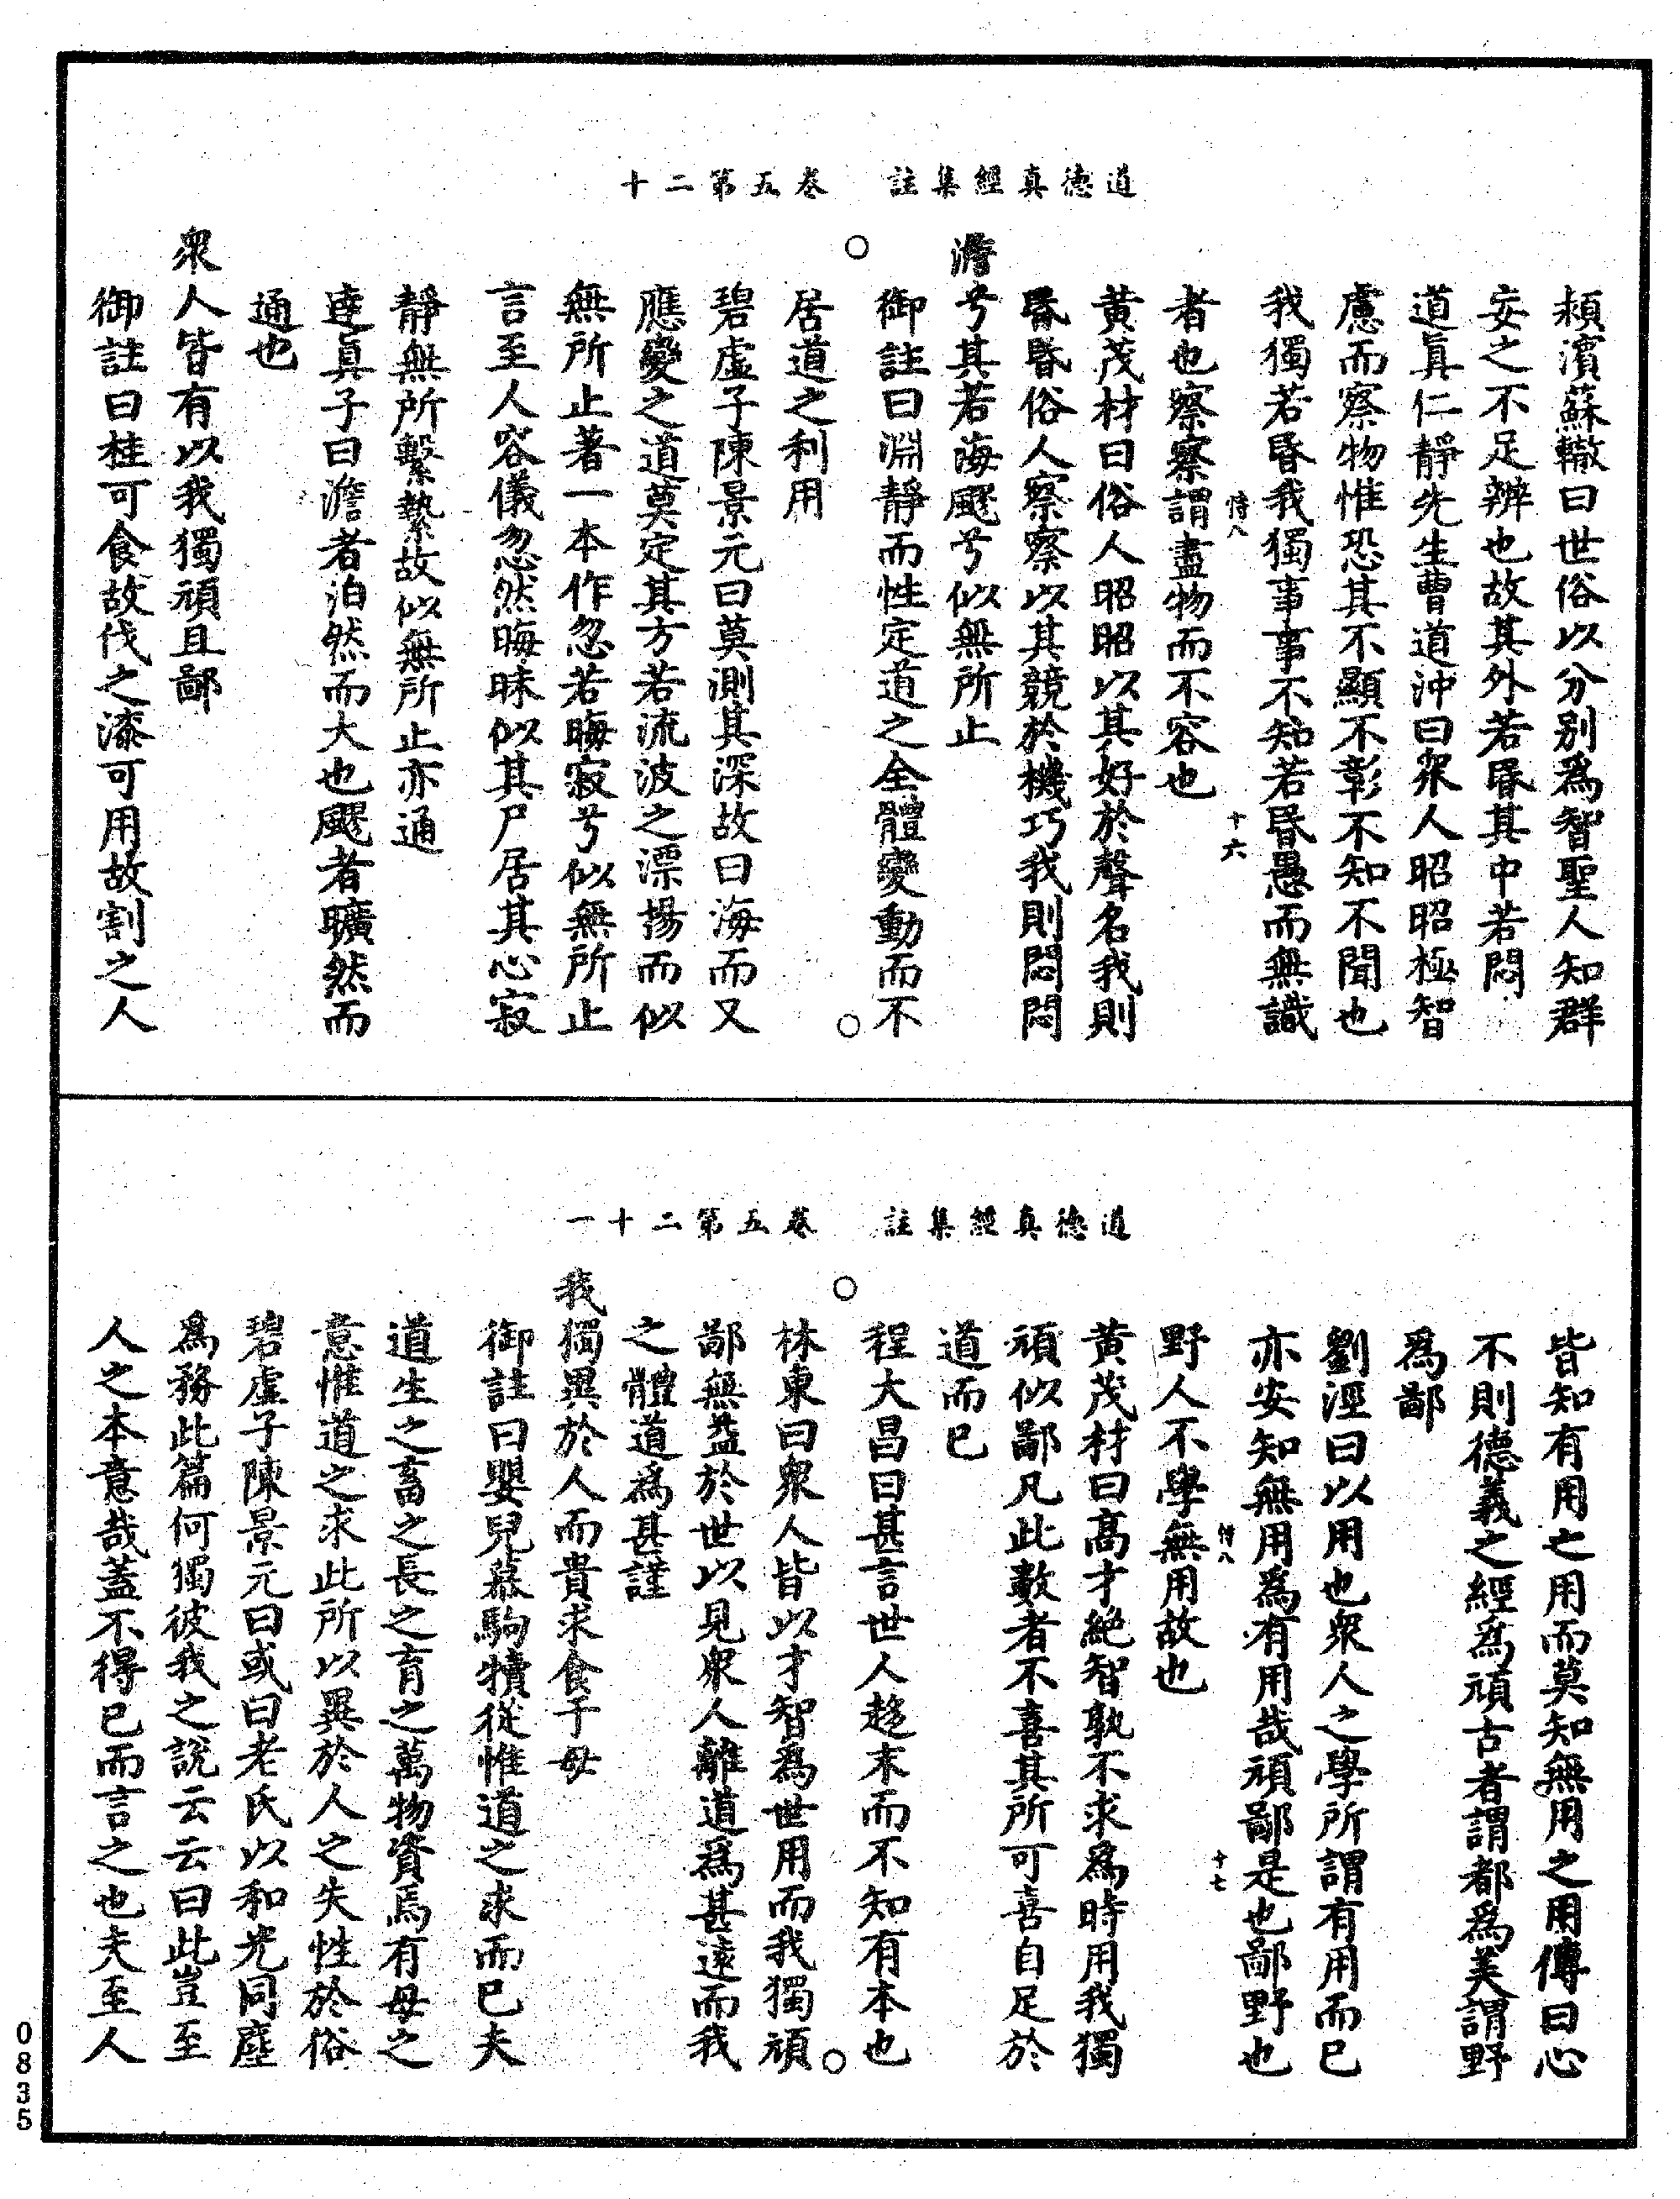 道德真經集註　卷五第二十
頰濱蘇轍曰世俗以分别爲智聖人知群
妄之不足辨也故其外若昬其中若悶
道眞仁靜先生曹道沖曰衆人昭昭極智
慮而察物惟恐其不顯不彰不知不聞也
我獨若昬我獨事事不知若昬愚而無識
者也察察謂盡物而不容也
十六
黄茂材曰俗人昭昭以其好於聲名我則
昬昬俗人察察以其競於機巧我則悶悶
澹兮其若海飂兮似無所止
御註曰淵靜而性定道之全體變動而不
居道之利用
碧虛子陳景元曰莫測其深故曰海而又
應變之道莫定其方若流波之漂揚而似
無所止著一本作忽若晦寂兮似無所止
言至人容儀忽然晦昧似其尸居其心寂
靜無所繫縶故似無所止亦通
達眞子曰澹者泊然而大也飂者曠然而
通也
衆人皆有以我獨頑且鄙
御註曰桂可食故伐之漆可用故割之人
道德真經集註　卷五第二十一
皆知有用之用而莫知無用之用傳曰心
不則德義之經爲頑古者謂都爲美謂野
爲鄙
劉涇曰以用也衆人之學所謂有用而已
亦安知無用爲有用哉頑鄙是也鄙野也
野人不學無用故也
十七
黄茂材曰高才絶智孰不求爲時用我獨
頑似鄙凡此數者不喜其所可喜自足於
道而已
程大昌曰甚言世人趍末而不知有本也
林東曰衆人皆以才智爲世用而我獨頑
鄙無益於世以見衆人離道爲甚遠而我
之體道爲甚謹
我獨異於人而貴求食于母
御註曰嬰兒慕駒犢從惟道之求而已夫
道生之畜之長之育之萬物資焉有母之
意惟道之求此所以異於人之失性於俗
碧虛子陳景元曰或曰老氏以和光同塵
爲務此篇何獨彼我之說云云曰此豈至
人之本意哉蓋不得已而言之也夫至人
0835